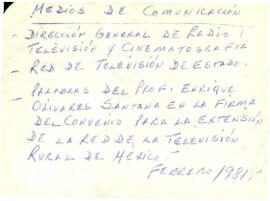 MEDIOS DE COMUNICACIÓN
- DIRECCIÓN GENERAL DE RADIO
TELEVISIÓN Y CINEMATOGRAFIA
- RED DE TELEVISIÓN DE ESTADO.
- PALABRAS DEL PROF. ENRIQUE
OLIVARES SANTANA EN LA FIRMA
DEL CONVENIO PARA LA EXTENSIÓN
DE LA RED DE LA TELEVISIÓN
RURAL DE MEXICO.
FEBRERO/1981.